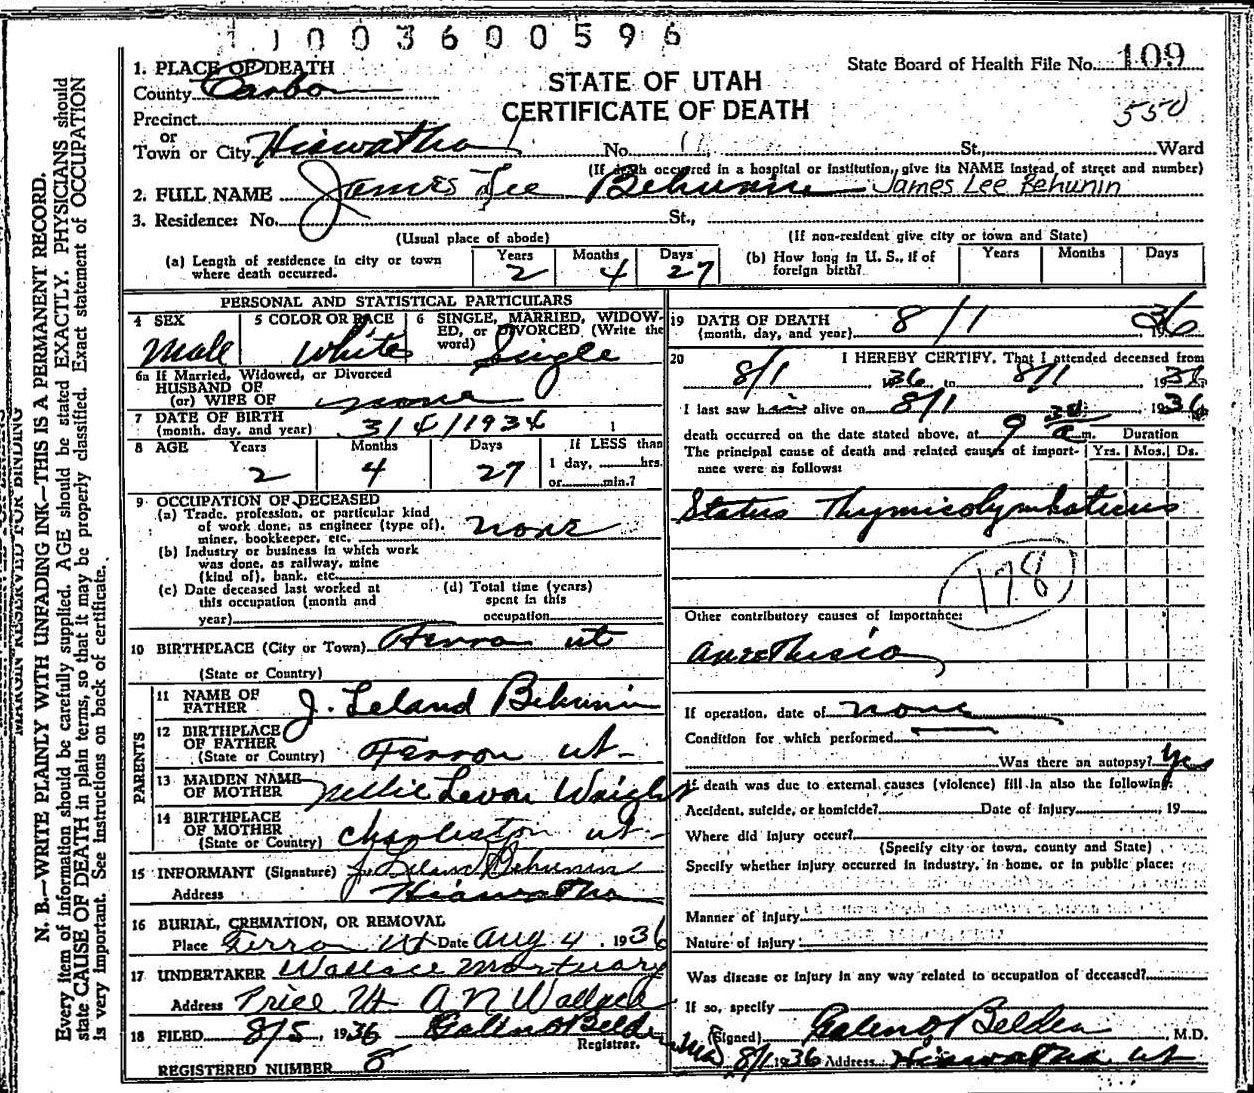 1003600596
State Board of Health File No. 109
1. PLACE OF DEATH
STATE OF UTAH
County Carbon
CERTIFICATE OF DEATH
550
Precinct
or
Town or City Hiawatha No. St., Ward
(If death occurred in a hospital or institution, give its NAME instead of street and number)
2. FULL NAME James Lee Behunin James Lee Behunin
3. Residence: No. St.,
(Usual place of abode) (If non-resident give city or town and State)
(a) Length of residence in city or town where death occurred. Years 2 Months 4 Days 27 (b) How long in U. S., if of foreign birth? Years Months Days
PERSONAL AND STATISTICAL PARTICULARS
4 SEX Male
5 COLOR OR RACE White
6 SINGLE, MARRIED, WIDOW-
ED, or DIVORCED (Write the
word) Single
6a If Married, Widowed, or Divorced
HUSBAND OF
(or) WIFE OF none
7 DATE OF BIRTH
(month, day, and year) 3/4/1934
8 AGE Years 2 Months 4 Days 27 If LESS than
1 day, hrs.
or min.?
9 OCCUPATION OF DECEASED
(a) Trade, profession, or particular kind
of work done, as engineer (type of),
miner, bookkeeper, etc. none
(b) Industry or business in which work
was done, as railway, mine
(kind of), bank, etc.
(c) Date deceased last worked at
this occupation (month and
year)
(d) Total time (years)
spent in this
occupation
10 BIRTHPLACE (City or Town) Ferron ut
(State or Country)
PARENTS
11 NAME OF
FATHER J. Leland Behunin
12 BIRTHPLACE
OF FATHER
(State or Country) Ferron ut
13 MAIDEN NAME
OF MOTHER Nellie Levon Wright
14 BIRTHPLACE
OF MOTHER
(State or Country) Charleston ut
15 INFORMANT (Signature) J. Leland Behunin
Address Hiawatha
16 BURIAL, CREMATION, OR REMOVAL
Place Ferron Ut Date Aug 4, 1936
17 UNDERTAKER Wallace Mortuary
Address Price Ut A N Wallace
18 FILED 8/5, 1936 Galen O Belden
Registrar.
REGISTERED NUMBER 8
19 DATE OF DEATH
(month, day, and year) 8/1 36
20 I HEREBY CERTIFY, That I attended deceased from
8/1 1936, to 8/1, 1936
I last saw him alive on 8/1 1936
death occurred on the date stated above, at 9 30 a m. Duration
The principal cause of death and related causes of import-
ance were as follows:
Yrs. Mos. Ds.
Status Thymicolymphaticus
178
Other contributory causes of importance:
Anesthesia
If operation, date of none
Condition for which performed
Was there an autopsy? Yes
If death was due to external causes (violence) fill in also the following:
Accident, suicide, or homicide? Date of injury, 19
Where did injury occur?
(Specify city or town, county and State)
Specify whether injury occurred in industry, in home, or in public place:
Manner of injury
Nature of injury
Was disease or injury in any way related to occupation of deceased?
If so, specify
(Signed) Galen O Belden M.D.
8/1 1936 Address Hiawatha, ut
MARGIN RESERVED FOR BINDING
N. B.—WRITE PLAINLY WITH UNFADING INK—THIS IS A PERMANENT RECORD.
Every item of information should be carefully supplied. AGE should be stated EXACTLY. PHYSICIANS should
state CAUSE OF DEATH in plain terms, so that it may be properly classified. Exact statement of OCCUPATION
is very important. See instructions on back of certificate.